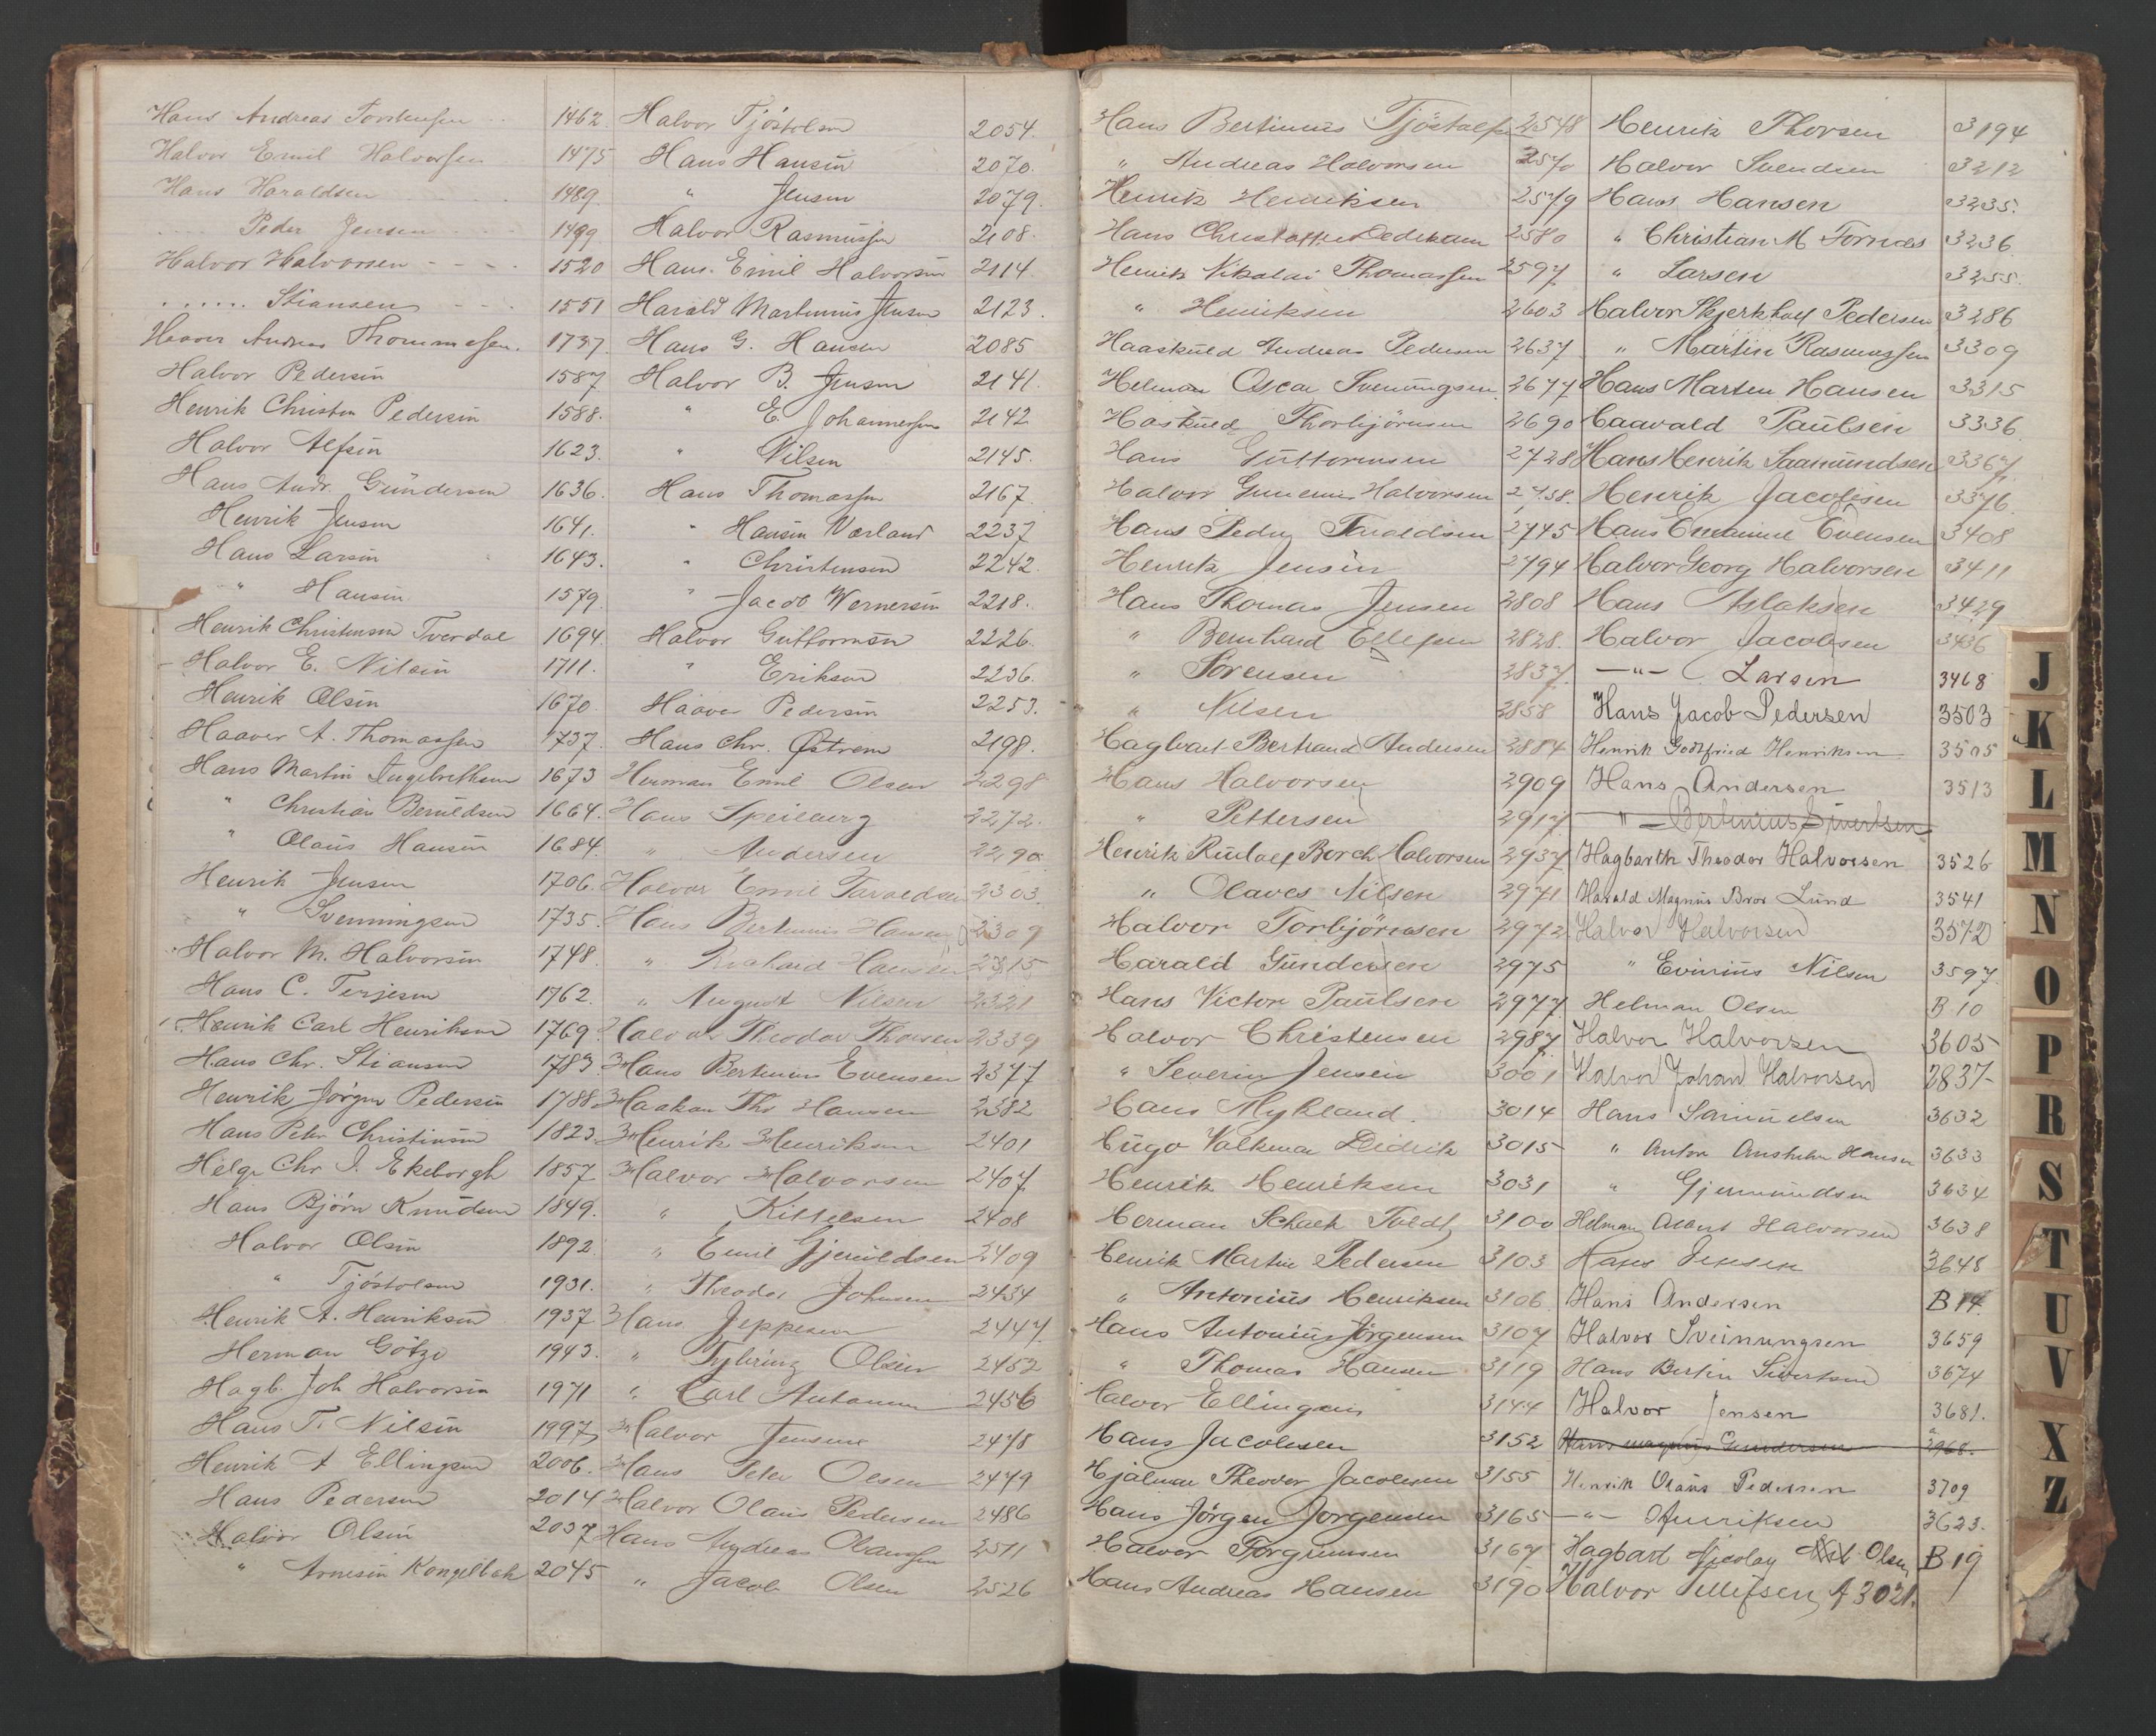 Hans Andreas Torstensen 1462
Halvor Emil Halvorsen 1475
Hans Haraldsen 1489
..... Peder Jensen 1499
Halvor Halvorsen 1520
...... Stiansen 1551
Haaver Andreas Thommesen. 1737
Halvor Pedersen 1587
Henrik Christen Pedersen 1588.
Halvor Alfsen 1623.
Hans Andr. Gundersen 1636.
Henrik Jensen 1641.
Hans Larsen 1643.
" Hansen 1579.
Henrik Christensen Tverdal 1694.
- Halvor E. Nilsen 1711.
Henrik Olsen 1670.
Haaver A. Thomassen 1737.
Hans Martin Ingebrethsen 1673
" Christian Beruldsen 1664.
" Olaus Hansen 1684.
Henrik Jensen 1706.
" Svenningsen 1735.
Halvor M. Halvorsen 1748.
Hans C. Terjesen 1762.
Henrik Carl Henriksen 1769.
Hans Chr. Stiansen 1783.
Henrik Jörgen Pedersen 1788
Hans Peter Christensen 1823
Helge Chr. I. Ekeborgh 1857
Hans Bjørn Knudsen 1849.
Halvor Olsen 1892.
" Tjöstolsen 1931.
Henrik A. Henriksen 1937
Herman Götze 1943.
Hagb. Joh Halvorsen 1971
Hans T. Nilsen 1997
Henrik A Ellingsen 2006.
Hans Pedersen 2014
Halvor Olsen 2037
" Arnesen Kongelbek 2045
Halvor Tjöstolsen 2054.
Hans Hansen 2070.
" Jensen 2079.
Halvor Rasmussen 2108.
Hans Emil Halvorsen 2114
Harald Martinius Jensen 2123.
Hans G. Hansen 2085
Halvor B. Jensen 2141.
" E. Johannessen 2142
" Nilsen 2145.
Hans Thomassen 2167.
" Hansen Værland 2237
" Christensen 2242.
" Jacob Wernersen 2218.
Halvor Guttormsen 2226.
" Eriksen 2236.
Haaver Pedersen 2253.
Hans Chr. Østrem 2198.
Herman Emil Olsen 2298
Hans Speilberg 2272.
" Andersen 2290.
Halvor Emil Taraldsen 2303.
Hans Bertinius Hansen 2309
" Richard Hansen 2315
" August Nilsen 2321
Halvor Theodor Thorsen 2339
Hans Bertinius Evensen 2377
Haakon Ths Hansen 2382
Henrik Henriksen 2401
Halvor Halvorsen 2407.
" Kittelsen 2408
" Emil Gjeruldsen 2409
" Theodor Johnsen 2434
Hans Jeppesen 2447.
" Tybring Olsen 2452
" Carl Antonsen 2456
Halvor Jensen 2478
Hans Peter Olsen 2479
Halvor Olaus Pedersen 2486
Hans Andreas Olaussen 2511
" Jacob Olsen 2526
Hans Bertinius Tjöstolfsen 2548
" Andreas Halvorsen 2570
Henrik Henriksen 2579
Hans Christoffer Pedersen 2580
Henrik Nikolai Thomassen 2597
" Henriksen 2603
Haaskuld Andreas Pedersen 2637
Helman Oscar Svenningsen 2677
Haskuld Thorbjörnsen 2690
Hans Guttormsen 2728
Halvor Gunerius Halvorsen 2738.
Hans Peder Taraldsen 2745
Henrik Jensen 2794
Hans Thomas Jensen 2808
" Bernhard Ellefsen 2828.
" Sörensen 2837.
" Nilsen 2858
Hagbart Bertrand Andersen 2884
Hans Halvorsen 2909
" Pettersen 2917
Henrik Rudolf Borch Halvorsen 2937
" Olaves Nilsen 2971
Halvor Torbjörnsen 2972
Harald Gundersen 2975
Hans Victor Paulsen 2977
Halvor Christensen 2987
" Severin Jensen 3001
Hans Mykland 3014
Hugo Valkemar Didrik 3015
Henrik Henriksen 3031
Herman Schack Toldt 3100
Henrik Martin Pedersen 3103
" Antonius Henriksen 3106
Hans Antonius Jörgensen 3107
" Thomas Hansen 3119
Halvor Ellingsen 3144
Hans Jacobsen 3152
Hjalmar Theodor Jacobsen 3155
Hans Jörgen Jörgensen 3165
Halvor Torgrimsen 3167
Hans Andreas Hansen 3190
Henrik Thorsen 3194
Halvor Svendsen 3212
Hans Hansen 3235.
" Christian M Tornæs 3236
" Larsen 3255.
Halvor Skjerkholt Pedersen 3286
" Martin Rasmussen 3309
Hans Marten Hansen 3315
Haavald Paulsen 3336.
Hans Henrik Saamundsen 3367
Henrik Jacobsen 3376.
Hans Emanuel Evensen 3408
Halvor Georg Halvorsen 3411
Hans Aslaksen 3429
Halvor Jacobsen 3436
-"- Larsen 3468
Hans Jacob Pedersen 3503
Henrik Godtfried Henriksen 3505
Hans Andersen 3513
" Bertinius Sivertsen
Hagbarth Theodor Halvorsen 3526
Harald Magnus Bror Lund 3541
Halvor Halvorsen 3572
" Evinius Nilsen 3597
Helman Olsen B 10
Halvor Halvorsen 3605
Halvor Johan Halvorsen 2837
Hans Samuelsen 3632
" Anton Anshelm Hansen 3633
" Gjermundsen 3634
Helman Albert Halvorsen 3638
Hans Jensen 3648
Hans Andersen B 14.
Halvor Sveinungsen 3659
Hans Bertin Sivertsen 3674
Halvor Jensen 3681.
Hans Magnus Gundersen 2968.
Henrik Olaus Pedersen 3709
-"- Henriksen 3623.
Hagbart Nicolay Olsen B 19
Halvor Tellefsen A 3021.
J
K
L
M
N
O
P
R
S
T
U
V
X
Z